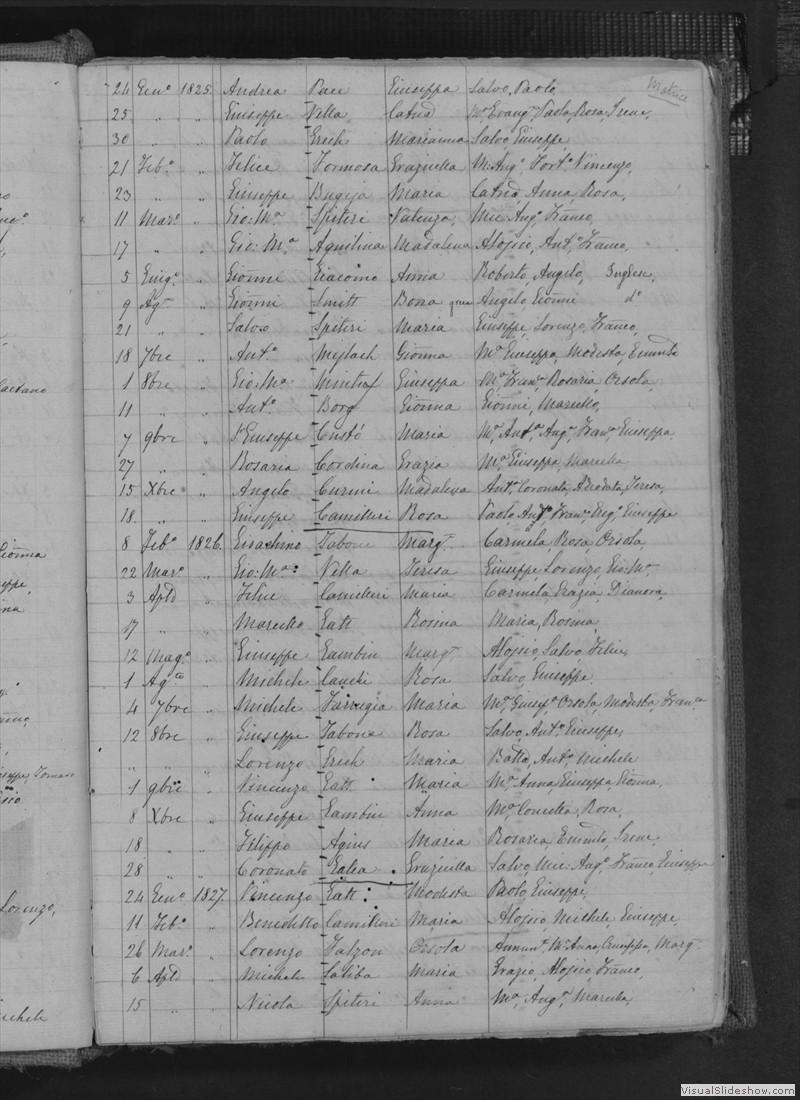 Matrice
24 Genº 1825 Andrea Pace Giuseppa Salvo, Paolo,
25 " " Giuseppe Vella Catna Mª Evangª Paola, Rosa, Irene,
30 " " Paolo Grech Marianna Salvo, Giuseppe,
21 Febº " Felice Formosa Graziella M: Angº Fortº Vincenzo,
23 " " Giuseppe Bugeja Maria Catna Anna, Rosa,
11 Marº " Gio: Mª Spiteri Valenza, Mic Angº Franco,
17 " " Gio: Mª Aquilina Madalena Aloisio, Antº Franco,
5 Giugº " Gionni Giacomo Anna Roberto, Angelo, Inglese
9 Agto " Gionni Smitt Bona Angelo, Gionni dº
21 " " Salvo Spiteri Maria Giuseppe, Lorenzo, Franco,
18 7bre " Antº Mejlach Gionna Mª Giuseppa, Modesta,
1 8bre " Gio: Mª Giuseppa Mª Franª Rosaria, Orsola,
11 " " Antº Borg Gionna Gionni, Marcello,
7 9bre " Giuseppe Custó Maria Mª Antª Angª Franª Giuseppa,
27 " " Rosario Cordina Grazia Mª Giuseppa, Marcella
15 Xbre " Angelo Curmi Madalena Antº Coronata, Adeodata, Teresa,
18 " " Giuseppe Camilleri Rosa Paolo Angº Franº Giuseppe
8 Febº 1826. Gioachino Tabone Margta Carmela, Rosa, Orsola,
22 Marº " Gio: Mª Vella Teresa Giuseppe, Lorenzo, Gio: Mª
3 Aple " Felice Camilleri Maria Carmela, Grazia, Dianora,
17 " " Marcello Gatt Rosina Maria, Rosina,
12 Magº " Giuseppe Gambin Margta Aloisio, Salvo, Felice,
1 Agto " Michele Rosa Salvo, Giuseppe,
4 7bre " Michele Farrugia Maria Mª Orsola, Modesta, Franca
12 8bre " Giuseppe Tabone Rosa Salvo, Antº Giuseppe,
" " " Lorenzo Grech Maria Batta, Antº Michele
1 9bre " Vincenzo Gatt Maria Mª Anna, Giuseppa, Gionna,
8 Xbre " Giuseppe Gambin Anna Mª Concetta, Rosa,
18 " " Filippo Agius Maria Rosaria, Irene,
28 " " Coronato Galea Graziella Salvo, Mic Angº Franco, Giuseppe
24 Genº 1827. Vincenzo Gatt Modesta Paolo, Giuseppe,
11 Febº " Benedetto Camilleri Maria Aloisio, Michele, Giuseppe,
26 Marº " Lorenzo Falzon Orsola Mª Anna, Giuseppa, Margta
6 Aple " Michele Saliba Maria Grazio, Aloisio, Franco,
15 " " Nicola Spiteri Anna Mª Angª Marcella,
Gaetano
Gionna
Lorenzo,
Michele
VisualSlideshow.com